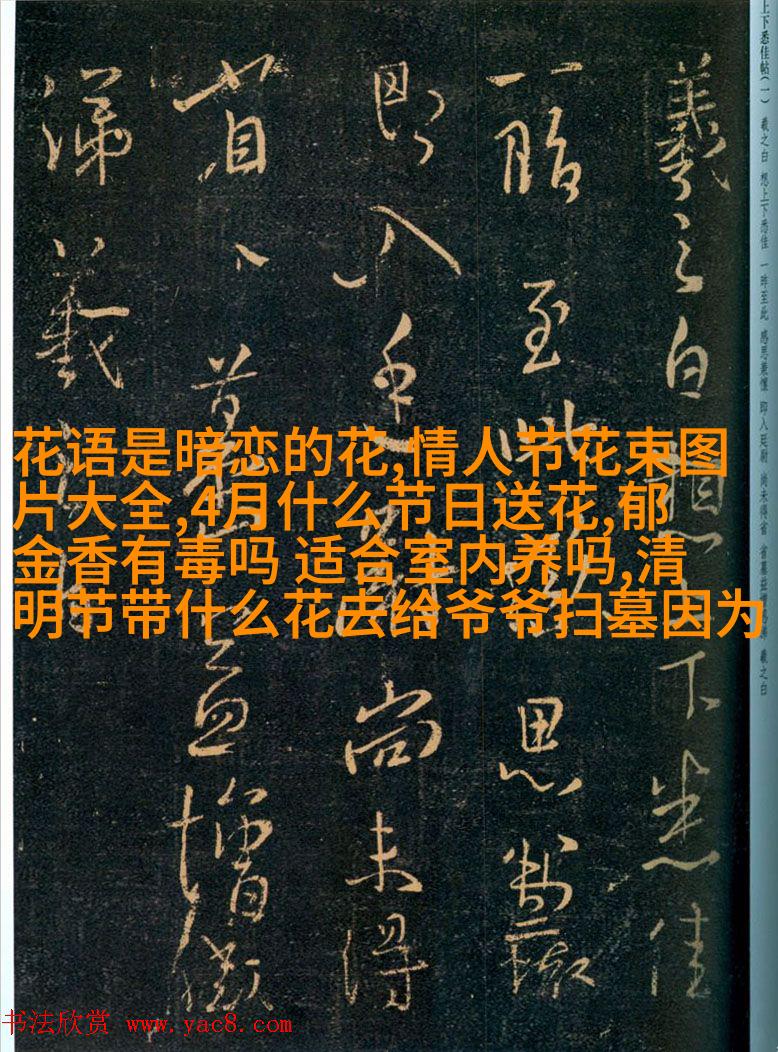 上下悉佳帖(一) 羲之白 想上下悉佳 一昨至此 感思兼 即入廷尉 尚未得省 省墓 羲之白
羲之白想上下悉佳
一昨至此感思兼
即入廷尉尚未得
省〻墓益增感
涕羲之白
花语是暗恋的花,情人节花束图
片大全,4月什么节日送花,郁
金香有毒吗 适合室内养吗,清
明节带什么花去给爷爷扫墓因为
书法欣赏 www.yac8.com